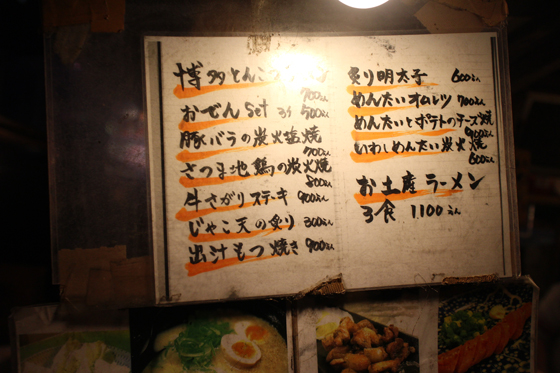 博多とんこつラーメン
700えん
おでんset 3ヶ 500えん
豚バラの炭火塩焼
700えん
さつま地鶏の炭火焼
800えん
牛さがりステキ 900えん
じゃこ天の炙り 300えん
出汁もつ焼き 900えん
炙り明太子 600えん
めんたいオムレツ 700えん
めんたいとポテトのチーズ焼
900えん
いわしめんたい炭火焼
600えん
お土産ラーメン
3食 1100えん